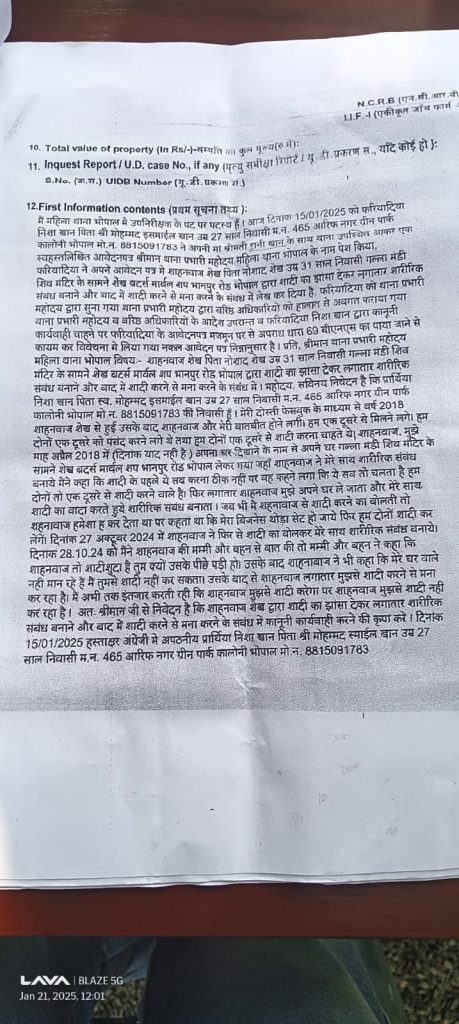 N.C.R.B (एन.सी.आर.बी
I.I.F.-I (एकीकृत जाँच फार्म
10. Total value of property (In Rs/-)-सम्पत्ति का कुल मूल्य(रु में):
11. Inquest Report / U.D. case No., if any (मृत्यु समीक्षा रिपोर्ट / यू.डी.प्रकरण स., यदि कोई हो ):
S.No. (क्र.सं.) UIDB Number (यू.डी.प्रकरण सं.)
12.First Information contents (प्रथम सूचना तथ्य ):
मैं महिला थाना भोपाल मे उपनिरीक्षक के पद पर पदस्थ हूँ। आज दिनांक 15/01/2025 को फरियादिया
निशा खान पिता श्री मोहम्मद इसमाईल खान उम्र 27 साल निवासी म.न. 465 आरिफ नगर ग्रीन पार्क
कालोनी भोपाल मो.न. 8815091783 ने अपनी मां श्रीमती रानी खान के साथ थाना उपस्थित आकर एक
स्वहस्तलिखित आवेदनपत्र श्रीमान थाना प्रभारी महोदय महिला थाना भोपाल के नाम पेश किया,
फरियादिया ने अपने आवेदन पत्र मे शाहनवाज शेख पिता नोशाद शेख उम्र 31 साल निवासी गल्ला मंडी
शिव मंदिर के सामने शेख ब्रदर्स मार्वल शप भानपुर रोड भोपाल द्वारा शादी का झांसा देकर लगातार शारीरिक
संबंध बनाने और बाद में शादी करने से मना करने के संबंध में लेख कर दिया है, फरियादिया को थाना प्रभारी
महोदय द्वारा सुना गया थाना प्रभारी महोदय द्वारा वरिष्ठ अधिकारियो को हालात से अवगत कराया गया
थाना प्रभारी महोदय व वरिष्ठ अधिकारियो के आदेश उपरान्त व फरियादिया निशा खान द्वारा कानूनी
कार्यवाही चाहने पर फरियादिया के आवेदनपत्र मजमून पर से अपराध धारा 69 बीएनएस का पाया जाने से
कायम कर विवेचना मे लिया गया नकल आवेदन पत्र निम्नानुसार है। प्रति, श्रीमान थाना प्रभारी महोदय
महिला थाना भोपाल विषयः- शाहनवाज शेख पिता नोशाद शेख उम्र 31 साल निवासी गल्ला मंडी शिव
मंदिर के सामने शेख ब्रदर्स मार्वल शप भानपुर रोड भोपाल द्वारा शादी का झांसा देकर लगातार शारीरिक
संबंध बनाने और बाद में शादी करने से मना करने के संबंध में। महोदय, सविनय निवेदन है कि प्रार्थिया
निशा खान पिता स्व. मोहम्मद इसमाईल खान उम्र 27 साल निवासी म.न. 465 आरिफ नगर ग्रीन पार्क
कालोनी भोपाल मो.न. 8815091783 की निवासी हूँ। मेरी दोस्ती फेसबुक के माध्यम से वर्ष 2018
शाहनवाज शेख से हुई उसके बाद शाहनवाज और मेरी बातचीत होने लगी। हम एक दूसरे से मिलने लगे। हम
दोनों एक दूसरे को पसंद करने लगे थे तथा हम दोनों एक दूसरे से शादी करना चाहते थे। शाहनवाज, मुझे
माह अप्रैल 2018 में (दिनांक याद नही है ) अपना घर दिखाने के नाम से अपने घर गल्ला मंडी शिव मंदिर के
सामने शेख ब्रदर्स मार्वल शप भानपुर रोड भोपाल लेकर गया जहाँ शाहनवाज ने मेरे साथ शारीरिक संबंध
बनाये मैंने कहा कि शादी के पहले ये सब करना ठीक नहीं पर वह कहने लगा कि ये सब तो चलता है हम
दोनों तो एक दूसरे से शादी करने वाले है। फिर लगातार शाहनवाज मुझे अपने घर ले जाता और मेरे साथ
शादी का वादा करते हुये शारीरिक सबंध बनाता । जब भी मैं शहनावाज से शादी करने का बोलती तो
शहनावाज हमेशा ह कर देता था पर कहता था कि मेरा बिजनेस थोड़ा सेट हो जाये फिर हम दोनों शादी कर
लेगे। दिनांक 27 अक्टूबर 2024 में शाहनवाज ने फिर से शादी का बोलकर मेरे साथ शारीरिक संबंध बनाये।
दिनांक 28.10.24 को मैंने शाहनवाज की मम्मी और बहन से बात की तो मम्मी और बहन ने कहा कि
शाहनवाज तो शादीशुदा है तुम क्यों उसके पीछे पड़ी हो। उसके बाद शाहनावाज ने भी कहा कि मेरे घर वाले
नही मान रहे हैं मैं तुमसे शादी नहीं कर सकता। उसके बाद से शाहनवाज लगातार मुझसे शादी करने से मना
कर रहा है। मैं अभी तक इंतजार करती रही कि शाहनवाज मुझसे शादी करेगा पर शाहनवाज मुझसे शादी नही
कर रहा है । अतः श्रीमान जी से निवेदन है कि शाहनवाज शेख द्वारा शादी का झांसा देकर लगातार शारीरिक
संबंध बनाने और बाद में शादी करने से मना करने के संबंध में कानूनी कार्यवाही करने की कृपा करे । दिनांक
15/01/2025 हस्ताक्षर अंग्रेजी मे अपठनीय प्रार्थिया निशा खान पिता श्री मोहम्मद स्माईल खान उम्र 27
साल निवासी म.न. 465 आरिफ नगर ग्रीन पार्क कालोनी भोपाल मो.न. 8815091783
LAVA | BLAZE 5G
Jan 21, 2025, 12:01